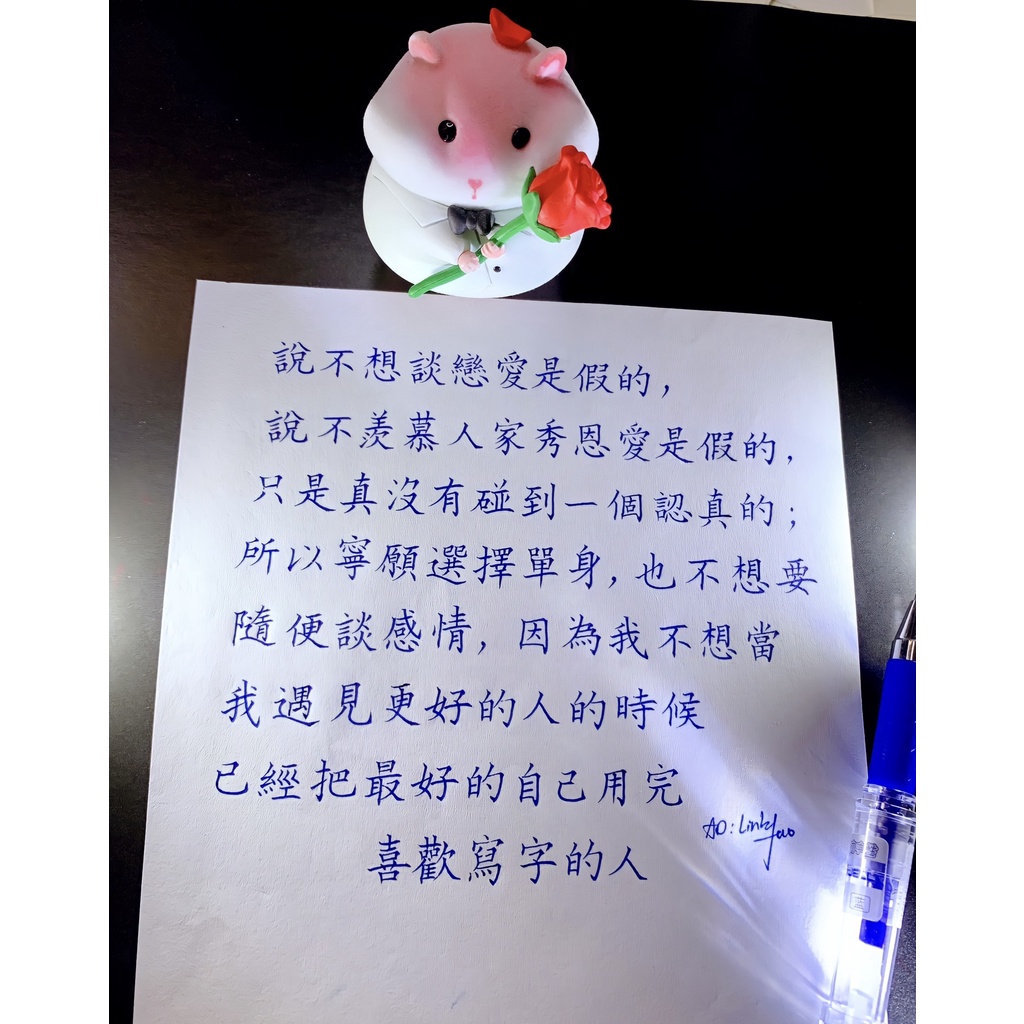 說不想談戀愛是假的，
說不羨慕人家秀恩愛是假的，
只是真沒有碰到一個認真的；
所以寧願選擇單身，也不想要
隨便談感情，因為我不想當
我遇見更好的人的時候
已經把最好的自己用完
喜歡寫字的人